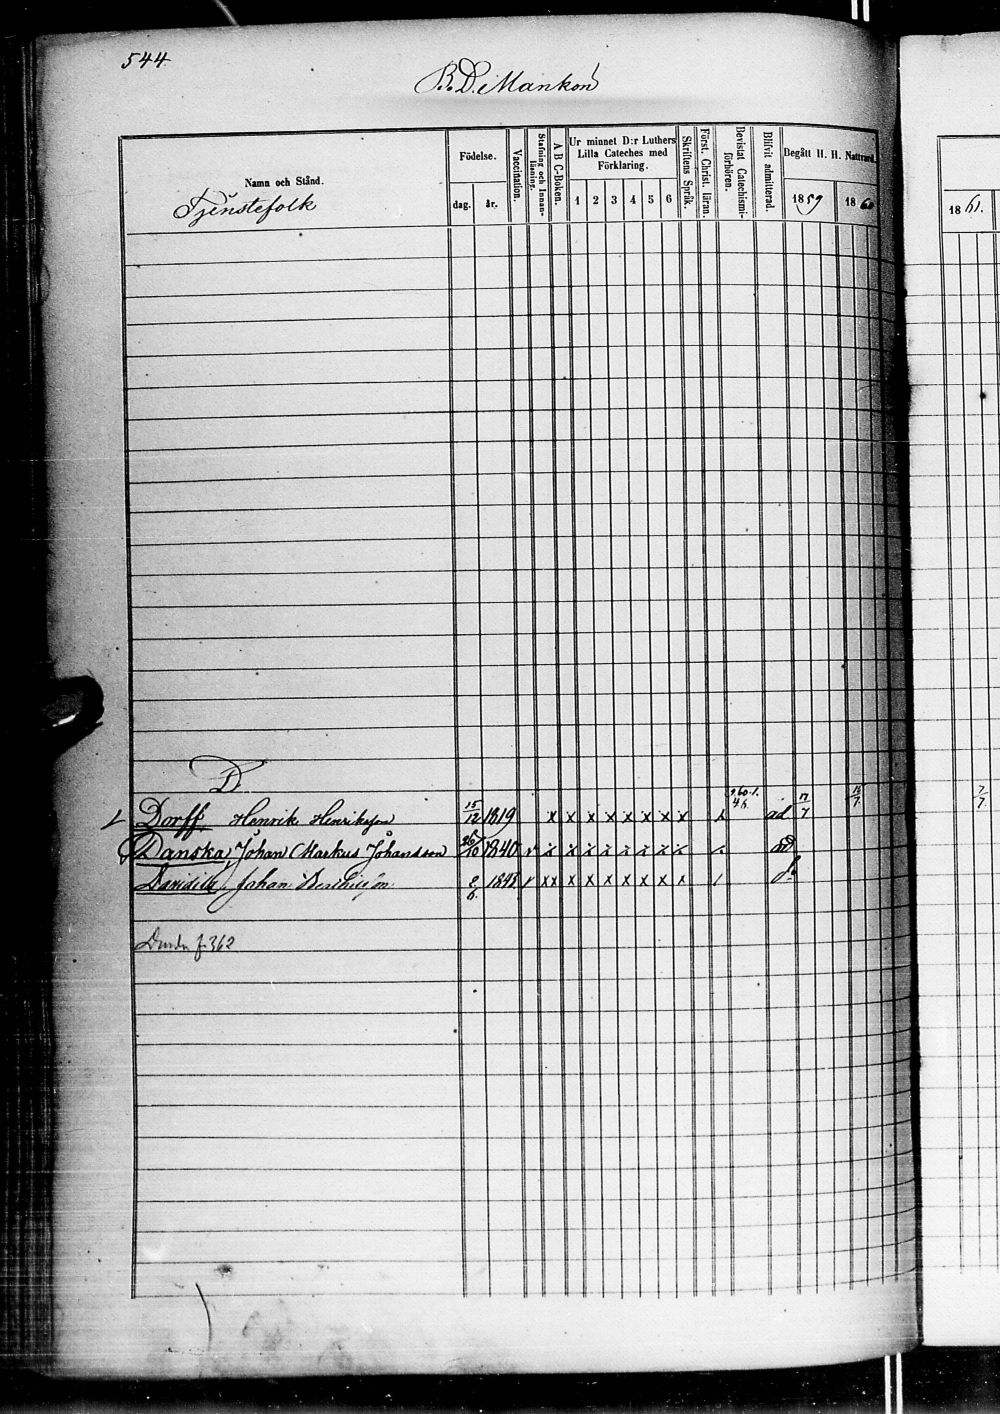 544
B. D. Mankon
Namn och Stånd.
Tjenstefolk
Födelse.
dag.
år.
Vaccination.
Stafning och Innanläsning.
A B C-Boken.
Ur minnet D:r Luthers
Lilla Cateches med
Förklaring.
1 2 3 4 5 6
Skriftens Språk.
Först. Christ. läran.
Bevistat Catechismiförhören.
Blifvit admitterad.
Begått H. H. Nattvard.
1859
1860
1861.
D
Dorff, Henrik Henriksson 15/12 1819 x x x x x x x x ad 17/7
Danska, Johan Markus Johansson 26/10 1840 v x x x x x x x x ad
Johan 2/6. 1843 v xx x x x x x x x d:o
f. 362
7/7